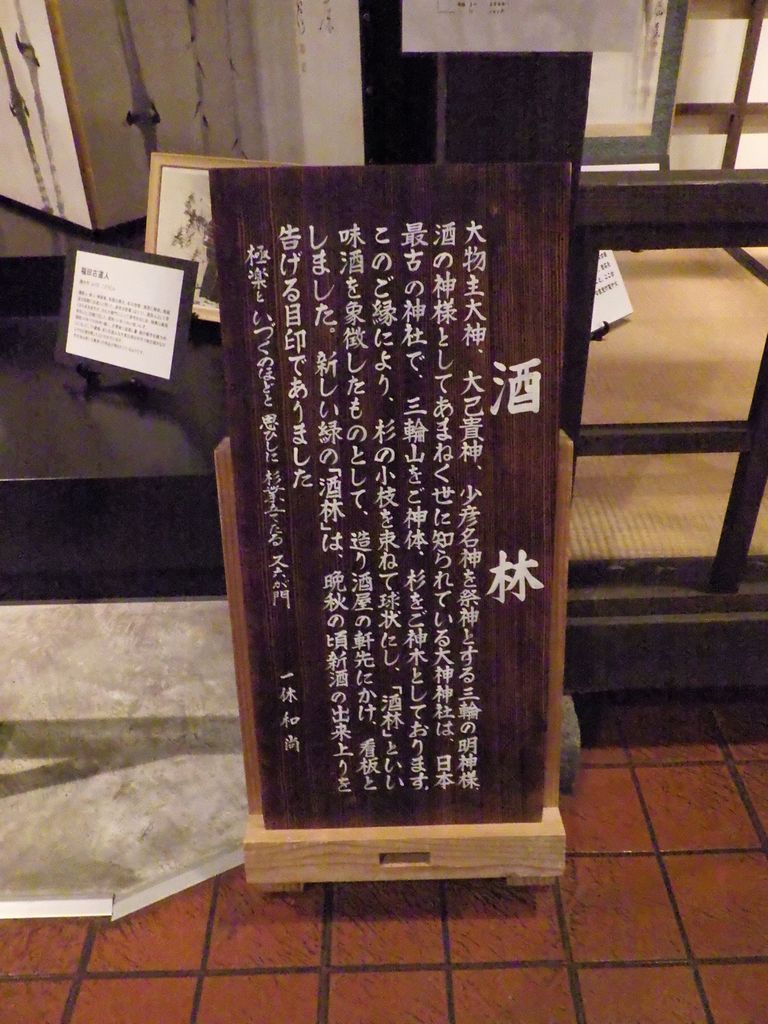 酒林
大物主大神、大己貴神、少彦名神を祭神とする三輪の明神様、
酒の神様としてあまねく世に知られている大神神社は、日本
最古の神社で、三輪山をご神体、杉をご神木としております。
このご縁により、杉の小枝を束ねて球状にし、「酒林」といい
味酒を象徴したものとして、造り酒屋の軒先にかけ、看板と
しました。新しい緑の「酒林」は、晩秋の頃新酒の出来上りを
告げる目印でありました
極楽といづくのほどと思ひしに杉葉立てたる又六が門
一休和尚
福田古道人